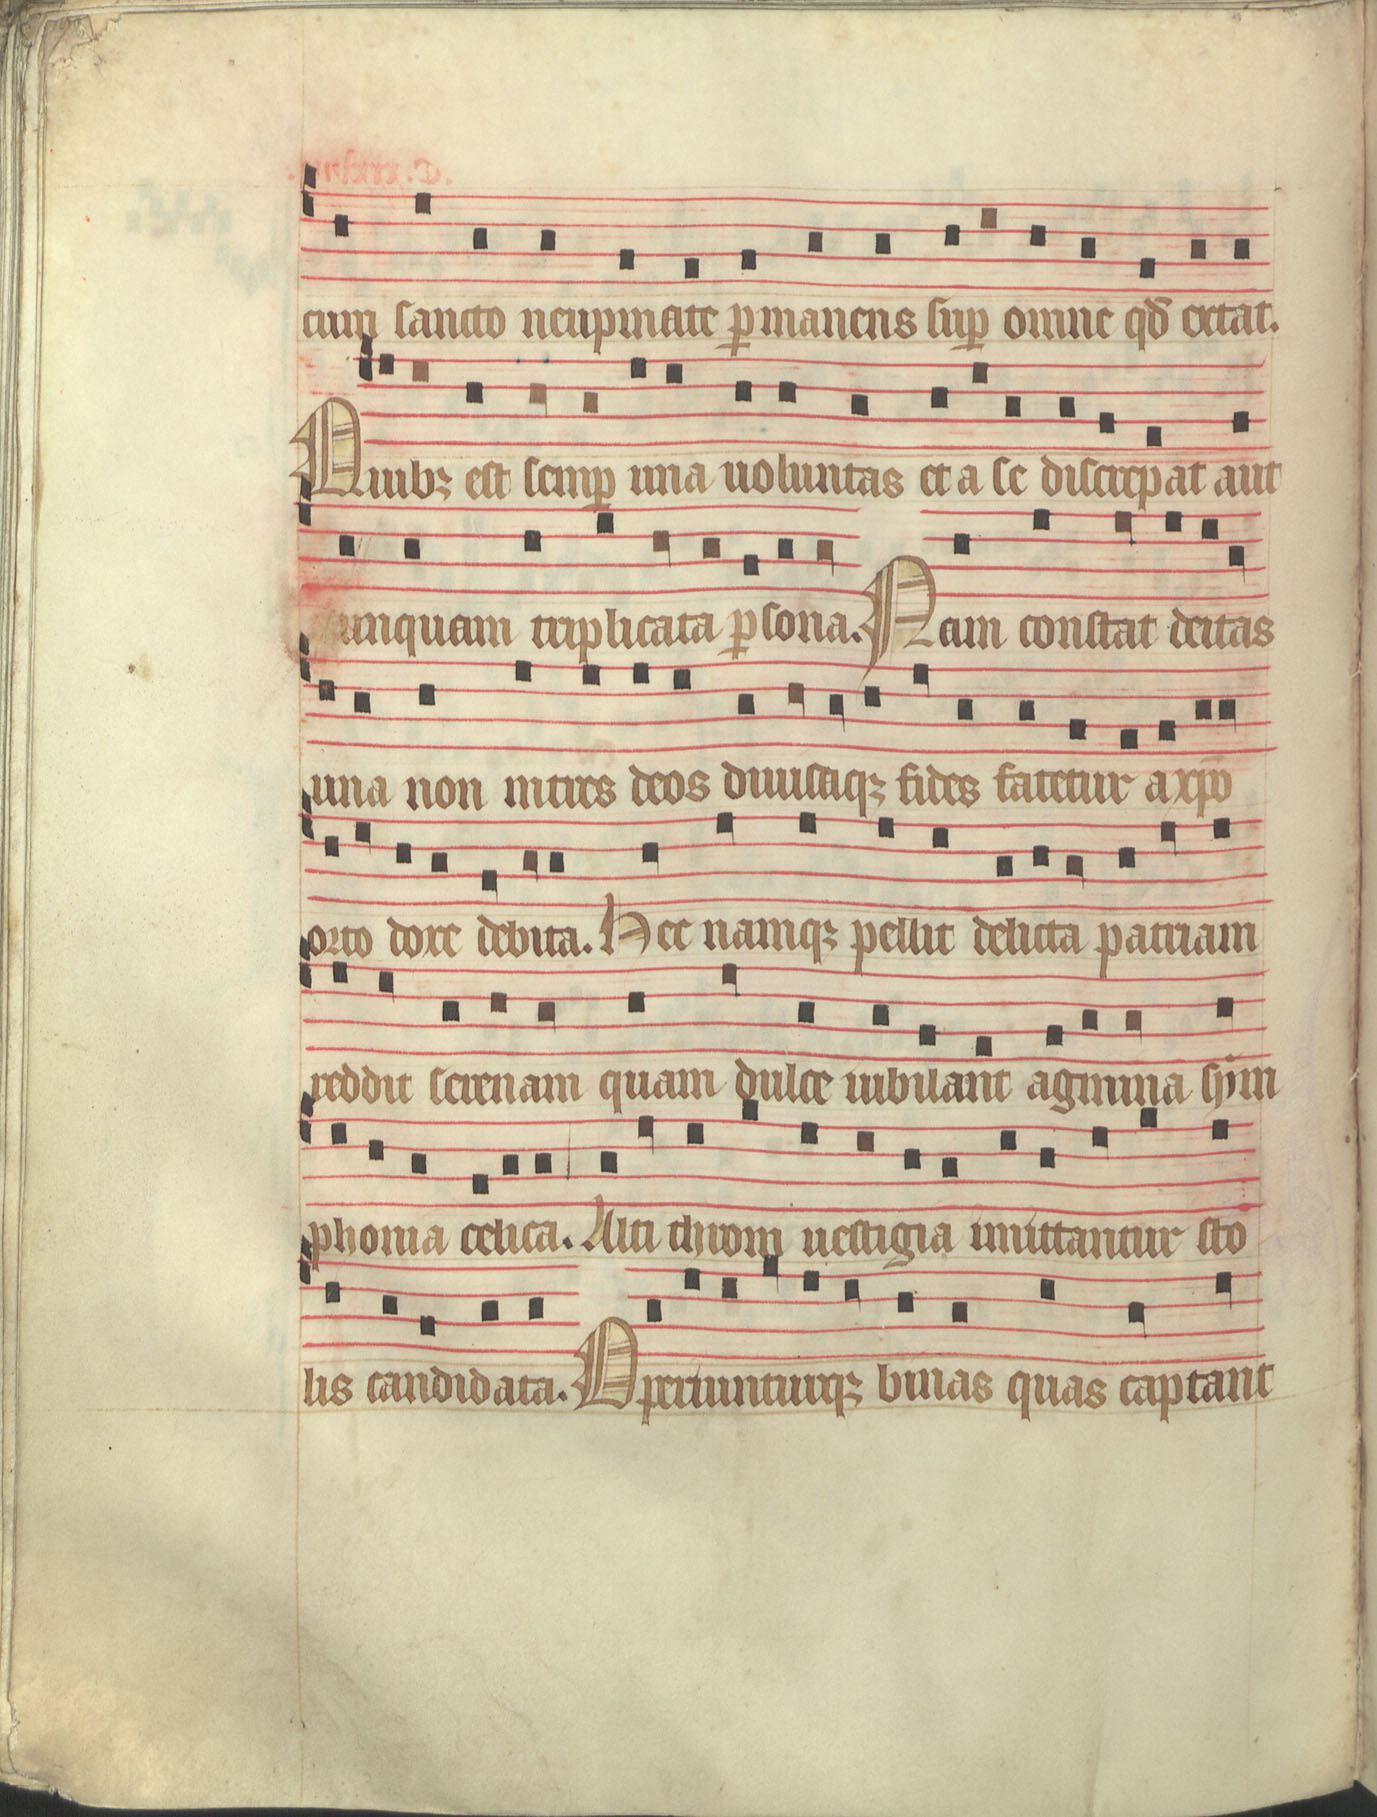 cum sancto neupmate ꝑmanens suꝑ omne qd̄ extat.
Quibꝫ est semꝑ una uoluntas et a se discrepat aut
unquam triplicata ꝑsona. Nam constat deitas
una non in tres deos diuisaqꝫ fides fatetur a xp̄o
orto doxe debita. Hec namqꝫ pellit delicta patriam
reddit serenam quam dulce iubilant agmina sym
phonia celica. Alti throni uestigia imittantur sto
lis candidata. Aperiunturqꝫ binas quas captant